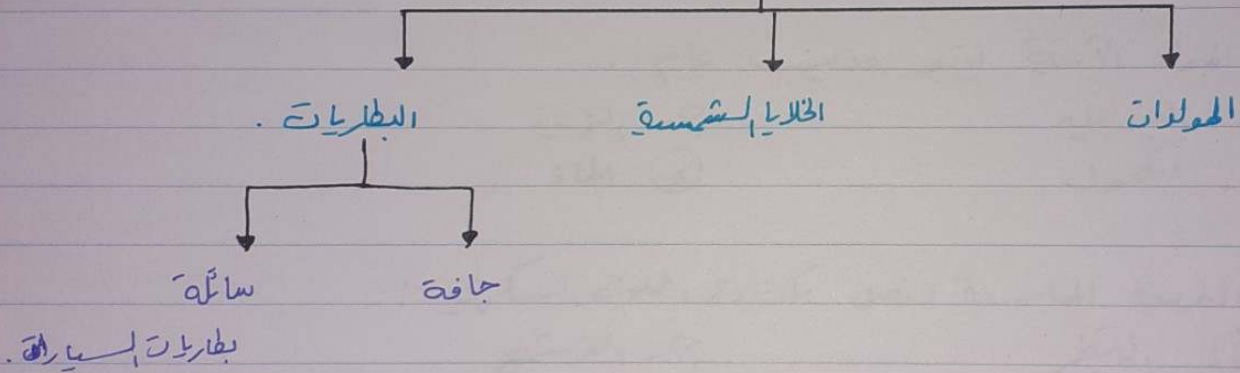 المولدات
الخلايا الشمسية
البطاريات .
جافة
سائلة
بطاريات السيارات .